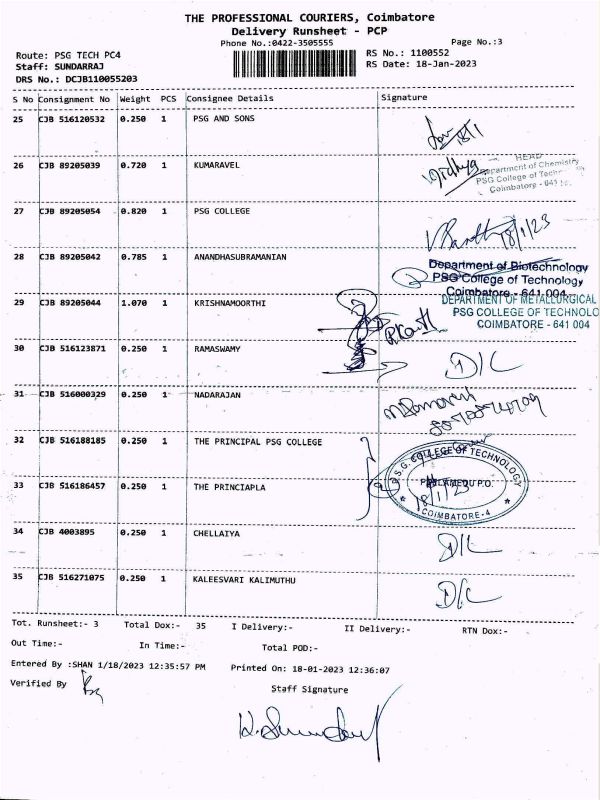 THE PROFESSIONAL COURIERS, Coimbatore
Delivery Runsheet - PCP
Phone No.:0422-3505555 Page No.:3
Route: PSG TECH PC4 RS No.: 1100552
Staff: SUNDARRAJ RS Date: 18-Jan-2023
DRS No.: DCJB110055203
S No Consignment No Weight PCS Consignee Details Signature
25 CJB 516120532 0.250 1 PSG AND SONS
18/1
26 CJB 89205039 0.720 1 KUMARAVEL
HEAD
Department of Chemistry
PSG College of
Coimbatore - 641
27 CJB 89205054 0.820 1 PSG COLLEGE
18/1/23
28 CJB 89205042 0.785 1 ANANDHASUBRAMANIAN
Department of Biotechnology
PSG College of Technology
Coimbatore - 641 004
29 CJB 89205044 1.070 1 KRISHNAMOORTHI
DEPARTMENT OF METALLURGICAL
PSG COLLEGE OF TECHNOLO
COIMBATORE - 641 004
30 CJB 516123871 0.250 1 RAMASWAMY
D/L
31 CJB 516000329 0.250 1 NADARAJAN
32 CJB 516188185 0.250 1 THE PRINCIPAL PSG COLLEGE
P.S.G. COLLEGE OF TECHNOLOGY
PEELAMEDU P.O.
18/1/23
COIMBATORE-4
33 CJB 516186457 0.250 1 THE PRINCIAPLA
34 CJB 4003895 0.250 1 CHELLAIYA
D/L
35 CJB 516271075 0.250 1 KALEESVARI KALIMUTHU
D/L
Tot. Runsheet:- 3 Total Dox:- 35 I Delivery:- II Delivery:- RTN Dox:-
Out Time:- In Time:- Total POD:-
Entered By :SHAN 1/18/2023 12:35:57 PM Printed On: 18-01-2023 12:36:07
Verified By Staff Signature